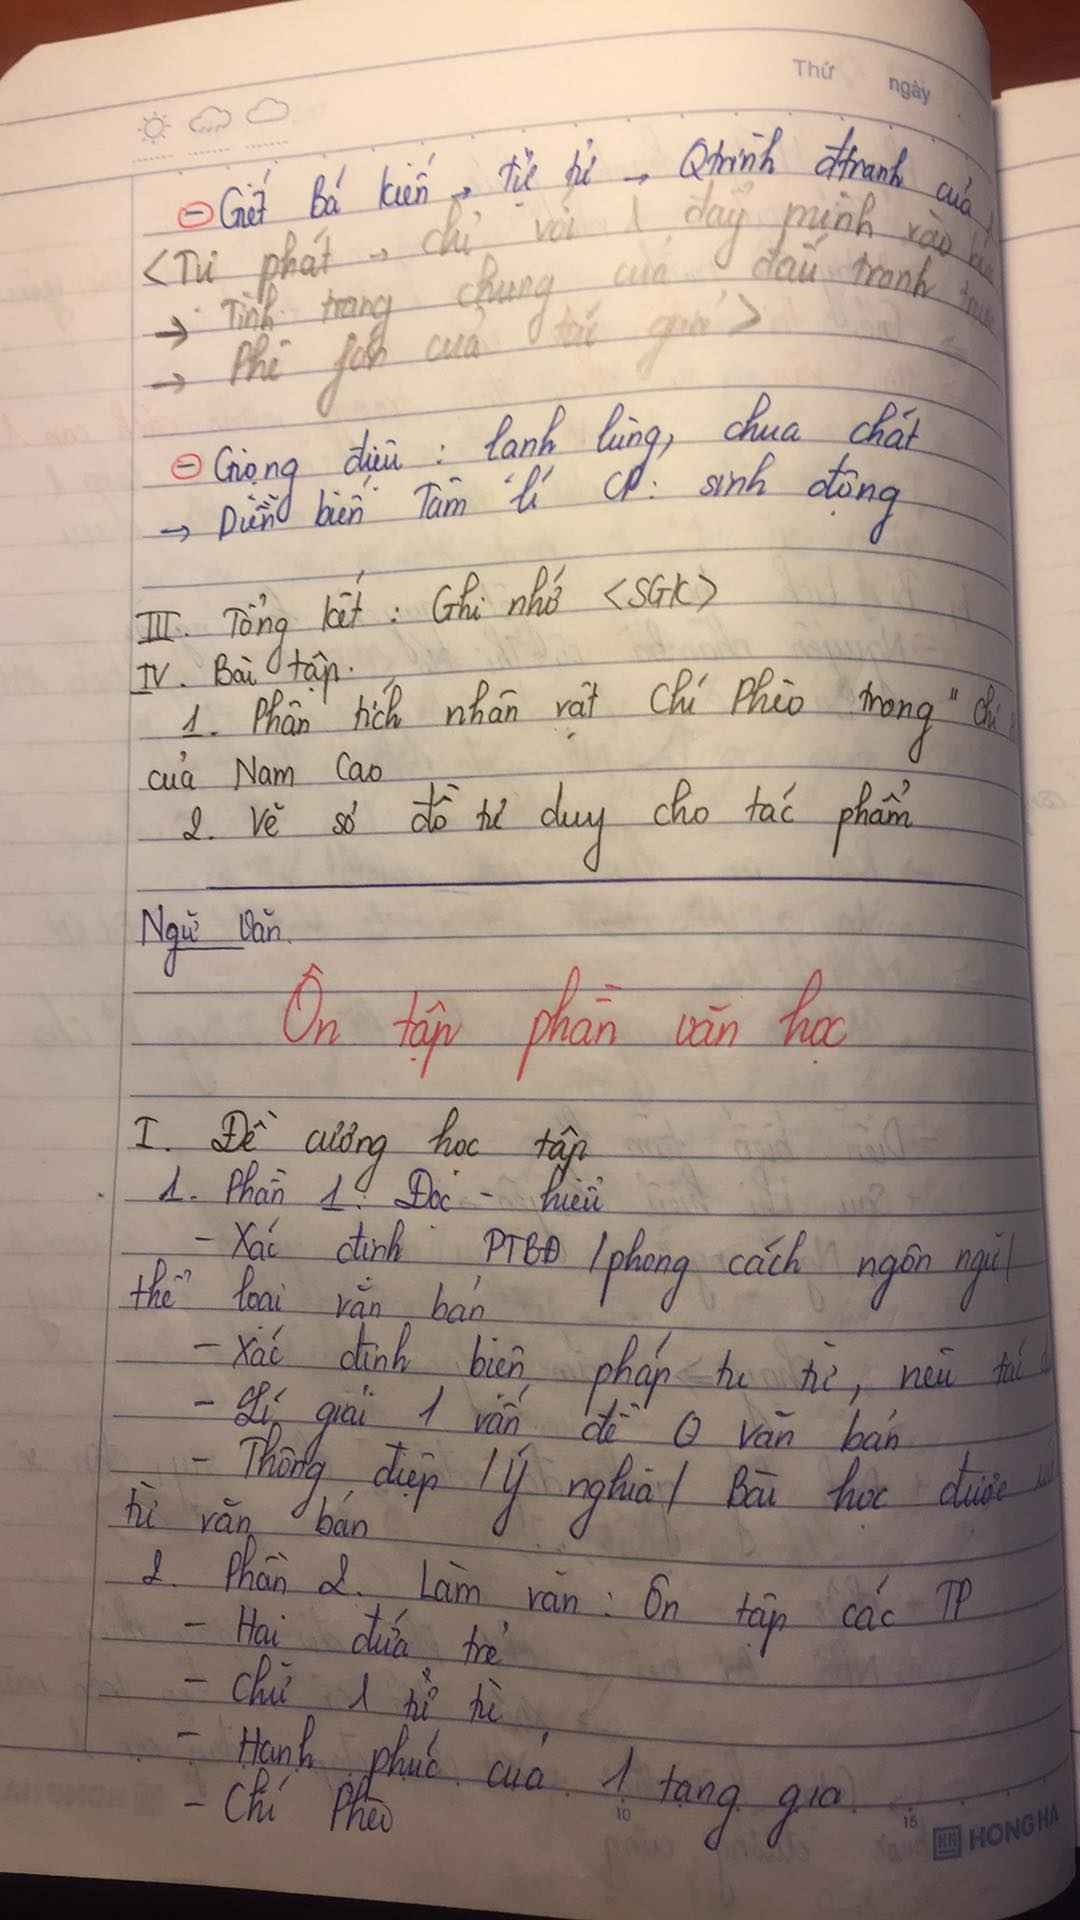 Thứ ngày
- Giết Bá Kiến → tự tử → Qtrình đtranh của
<Tự phát → chỉ với 1 đẩy mình vào
→ Tình trạng chung của đấu tranh
→ Phê phán của tác giả>
- Giọng điệu : lạnh lùng, chua chát
→ Diễn biến Tâm lí CP: sinh động
III. Tổng kết : Ghi nhớ <SGK>
IV. Bài tập.
1. Phân tích nhân vật Chí Phèo trong "Chí
của Nam Cao
2. Vẽ sơ đồ tư duy cho tác phẩm
Ngữ Văn
Ôn tập phần văn học
I. Đề cương học tập
1. Phần 1: Đọc - hiểu
- Xác định PTBĐ / phong cách ngôn ngữ /
thể loại văn bản
- Xác định biện pháp tu từ, nêu tác
- Lí giải 1 vấn đề O văn bản
- Thông điệp / Ý nghĩa / Bài học được
từ văn bản
2. Phần 2. Làm văn : Ôn tập các TP
- Hai đứa trẻ
- Chữ 1 tử tù
- Hạnh phúc của 1 tang gia
- Chí Phèo
10 15
HONG HA